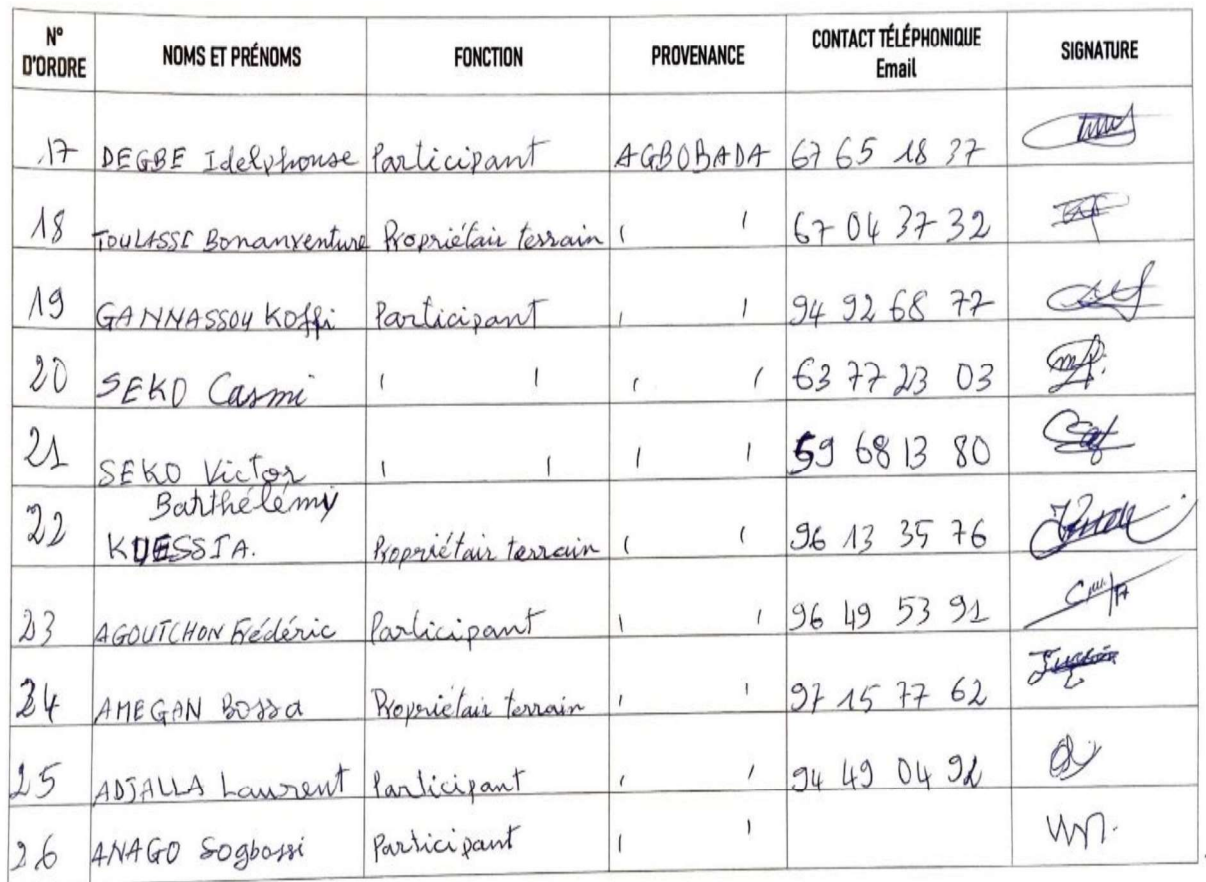 N° D'ORDRE NOMS ET PRÉNOMS FONCTION PROVENANCE CONTACT TÉLÉPHONIQUE Email SIGNATURE
17 DEGBE Idelphonse Participant AGBOBADA 67 65 18 37
18 TOULASSI Bonanventure Propriétair terrain ı ı 67 04 37 32
19 GANNASSOU Koffi Participant ı ı 94 92 68 77
20 SEKO Casmi ı ı ı ı 63 77 23 03
21 SEKO Victor ı ı ı ı 59 68 13 80
22 Barthélémy KUESSIA. Propriétair terrain ı ı 96 13 35 76
23 AGOUTCHON Frédéric Participant ı ı 96 49 53 91
24 AMEGAN Bossa Propriétair terrain ı ı 97 15 77 62
25 ADJALLA Laurent Participant ı ı 94 49 04 92
26 ANAGO Sogbossi Participant ı ı